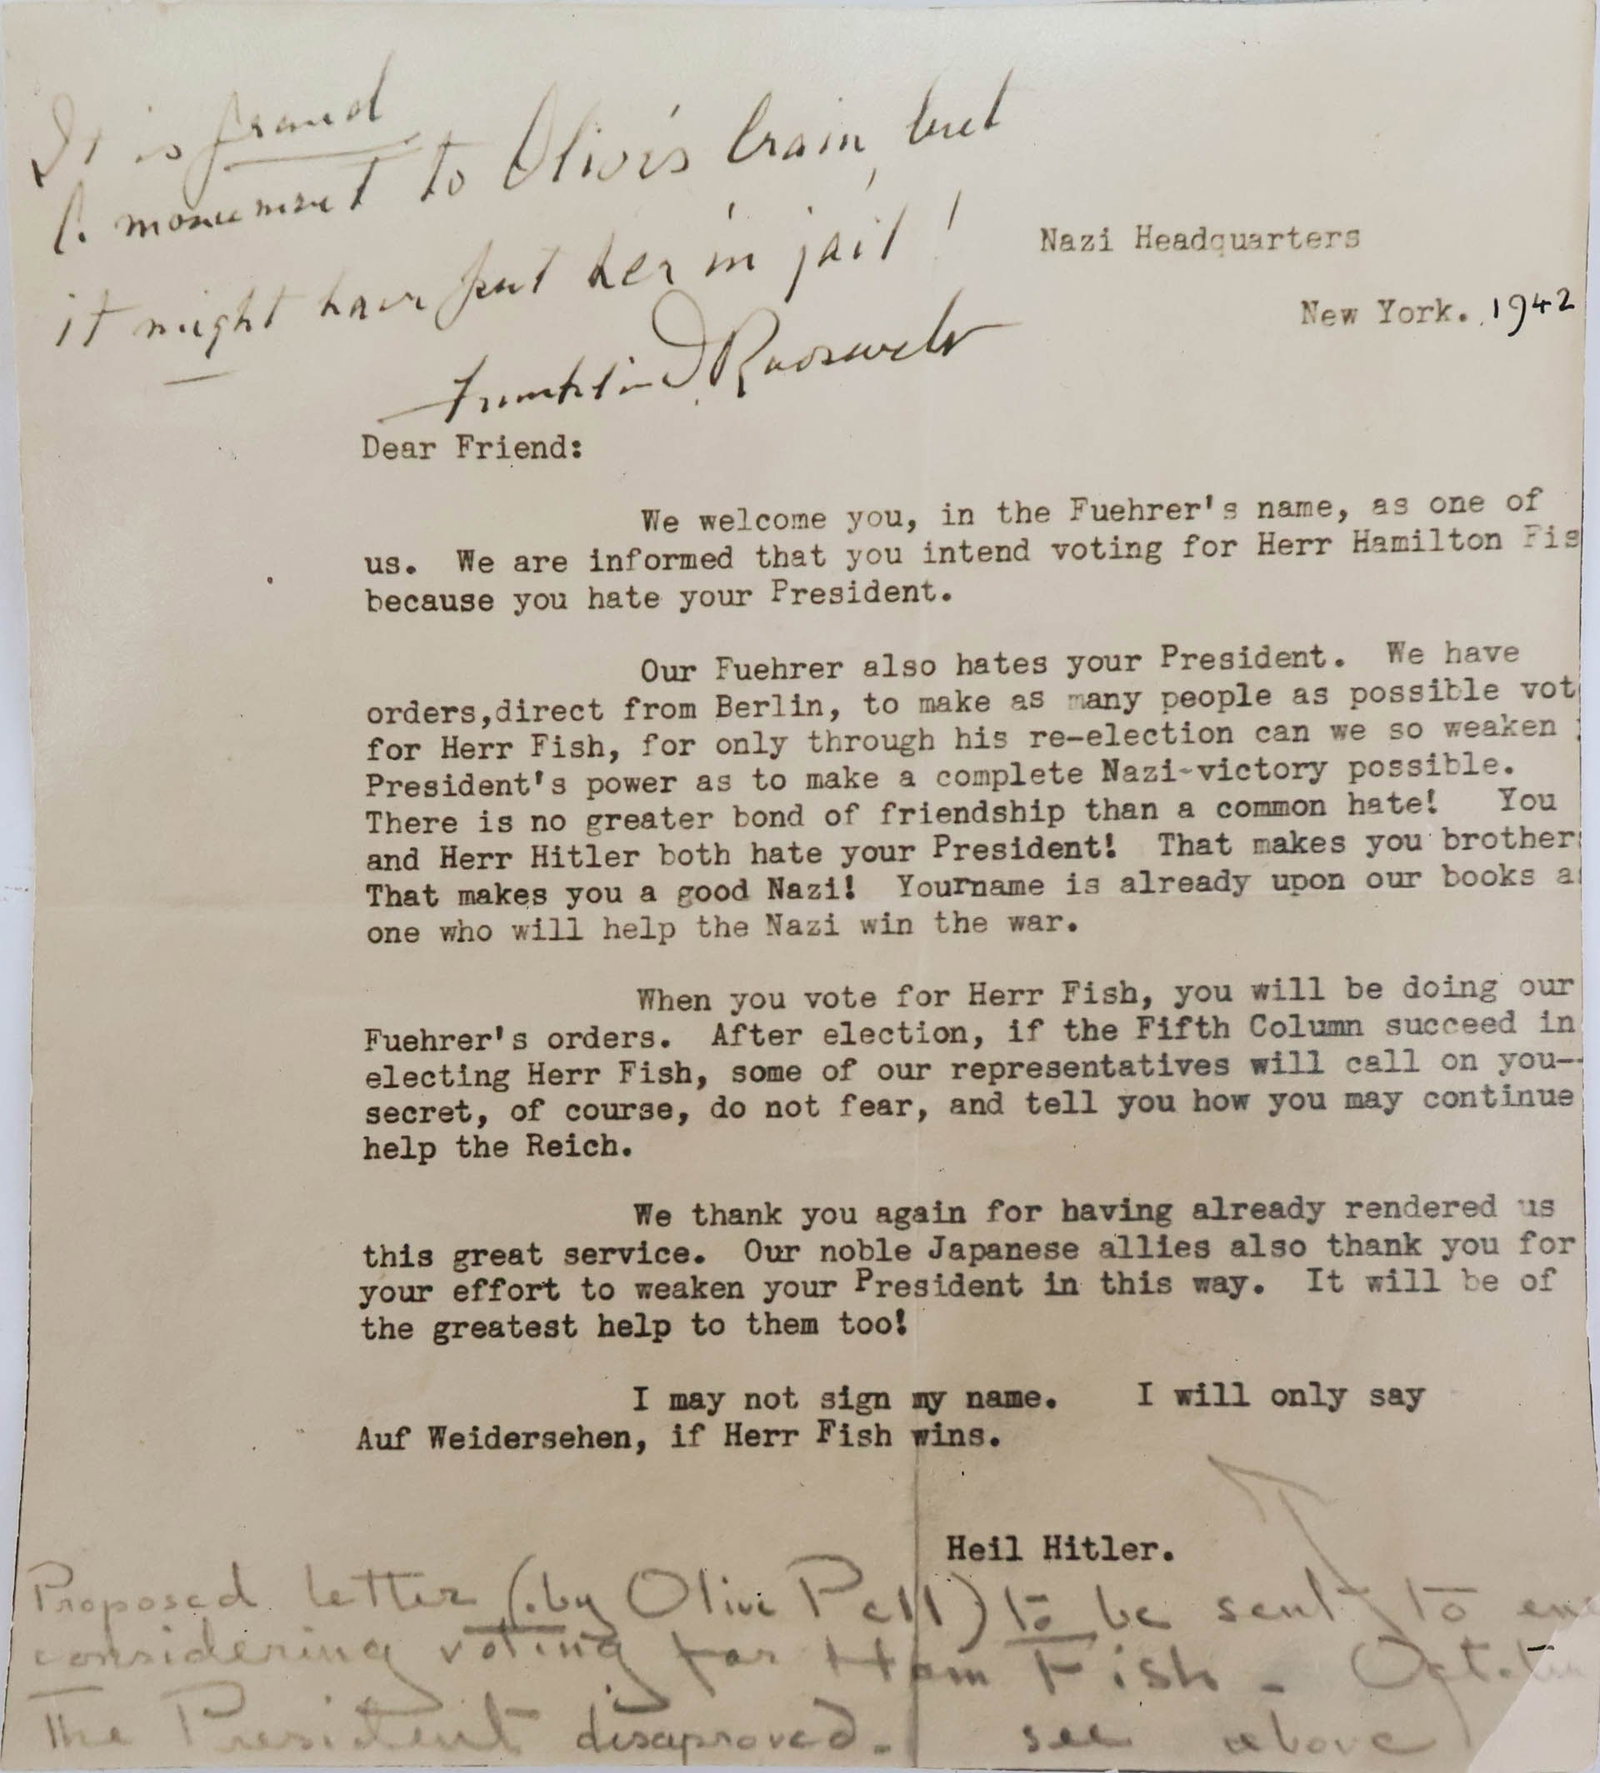 It is fraud
A monument to Olive's brain, but
it might have put her in jail!
Franklin D. Roosevelt
Nazi Headquarters
New York. 1942
Dear Friend:
We welcome you, in the Fuehrer's name, as one of
us. We are informed that you intend voting for Herr Hamilton Fis
because you hate your President.
Our Fuehrer also hates your President. We have
orders,direct from Berlin, to make as many people as possible vot
for Herr Fish, for only through his re-election can we so weaken
President's power as to make a complete Nazi-victory possible.
There is no greater bond of friendship than a common hate! You
and Herr Hitler both hate your President! That makes you brother
That makes you a good Nazi! Yourname is already upon our books a
one who will help the Nazi win the war.
When you vote for Herr Fish, you will be doing our
Fuehrer's orders. After election, if the Fifth Column succeed in
electing Herr Fish, some of our representatives will call on you--
secret, of course, do not fear, and tell you how you may continue
help the Reich.
We thank you again for having already rendered us
this great service. Our noble Japanese allies also thank you for
your effort to weaken your President in this way. It will be of
the greatest help to them too!
I may not sign my name. I will only say
Auf Weidersehen, if Herr Fish wins.
Heil Hitler.
Proposed letter (by Olive Pell) to be sent to
considering voting for Ham Fish -
The President disaproved. see above